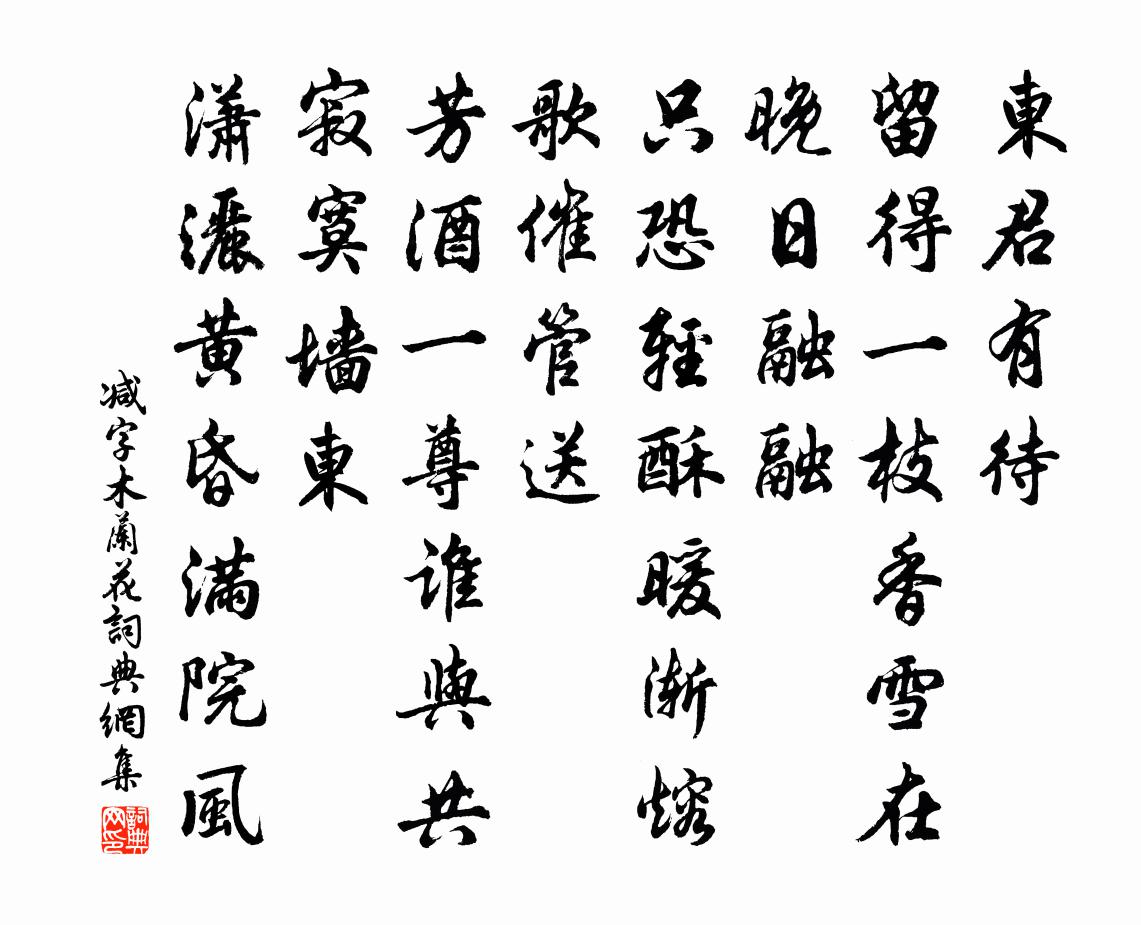 東君有待
留得一枝香雪在
晚日融融
只恐輕酥暖漸熔
歌催管送
芳酒一尊誰與共
寂寞墙東
瀟灑黃昏滿院風
减字木蘭花詞典網集
詞典网印